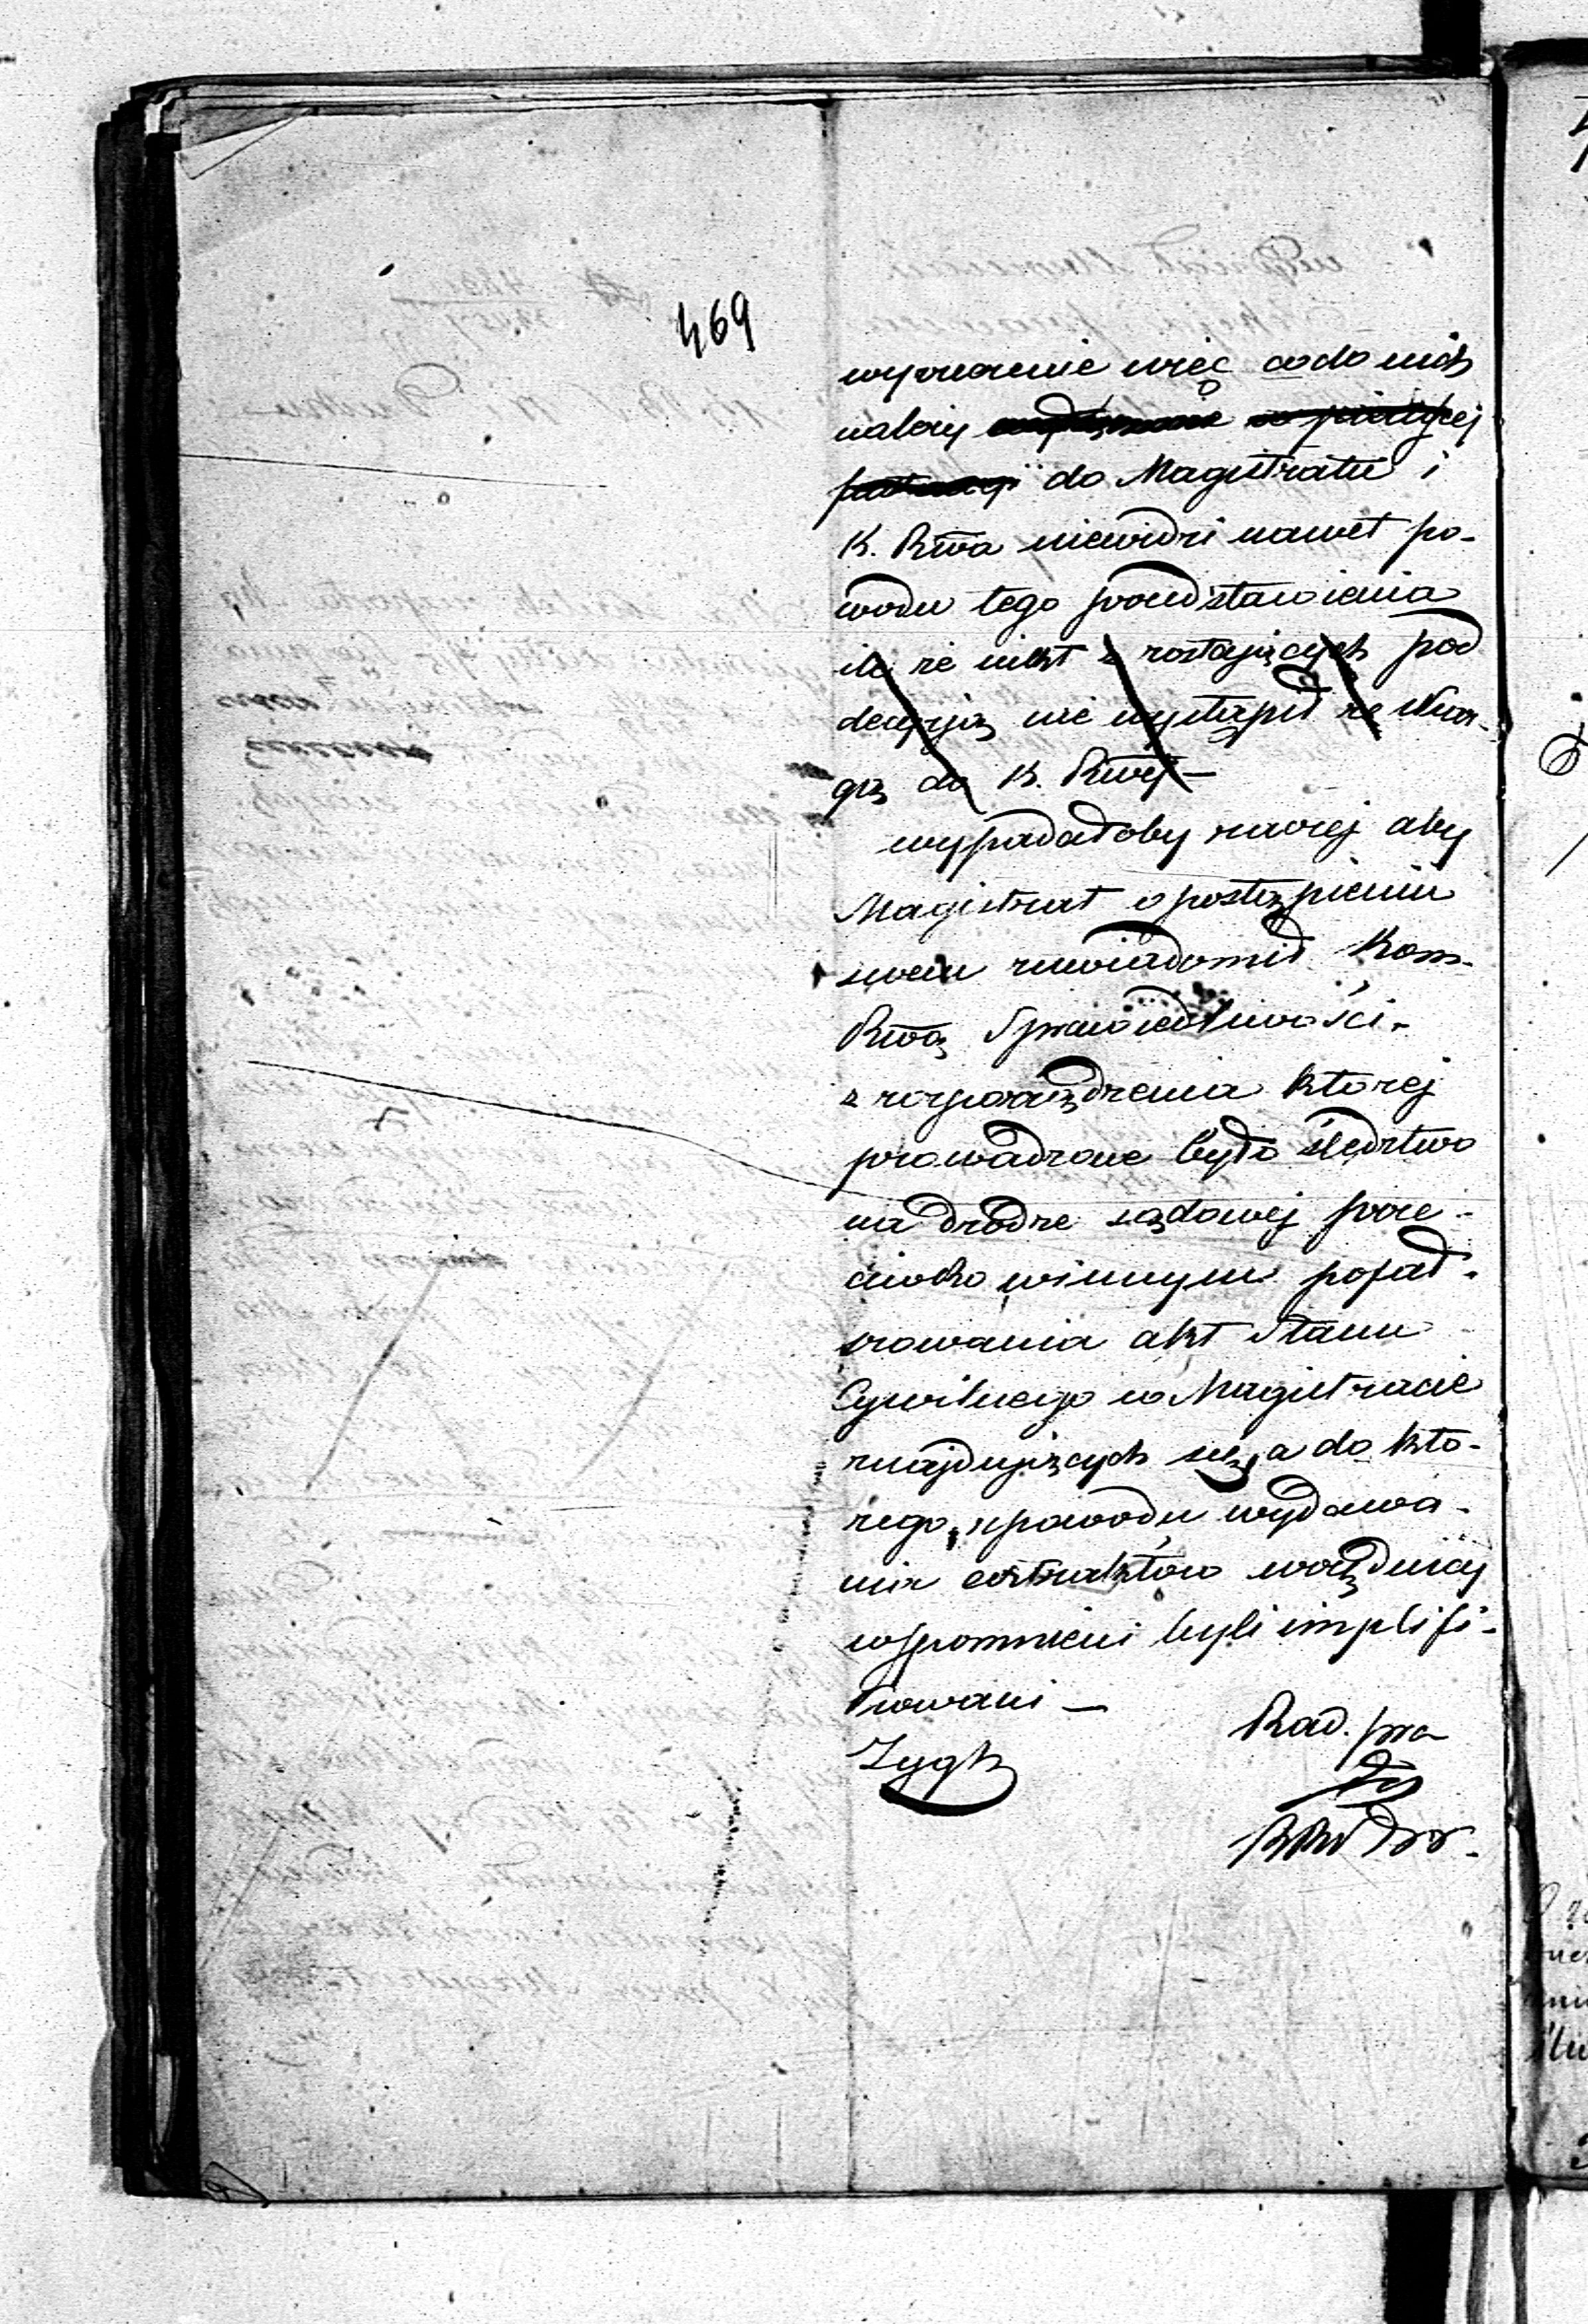 469
wyrzeczenie więc co do nich
należy w pierwszej
do Magistratu i
K. Rwa niewidzi nawet po-
wodu tego przedstawienia
ile że nikt z zostających pod
decyzją nie wystąpił ze skar-
gą do K. Rwej —
wypadałoby raczej aby
Magistrat o postąpieniu
swem zawiadomił Kom.
Rwą Sprawiedliwości.
z rozporządzenia ktorej
prowadzone było śledztwo
na drodze sądowej prze-
ciwko winnym pofał-
szowania akt Stanu
Cywilnego w Magistracie
znajdujących się, a do któ-
rego, z powodu wydawa-
nia extraktów urzędnicy
wspomnieni byli implifi-
kowani —
Rad. pra
Zygh